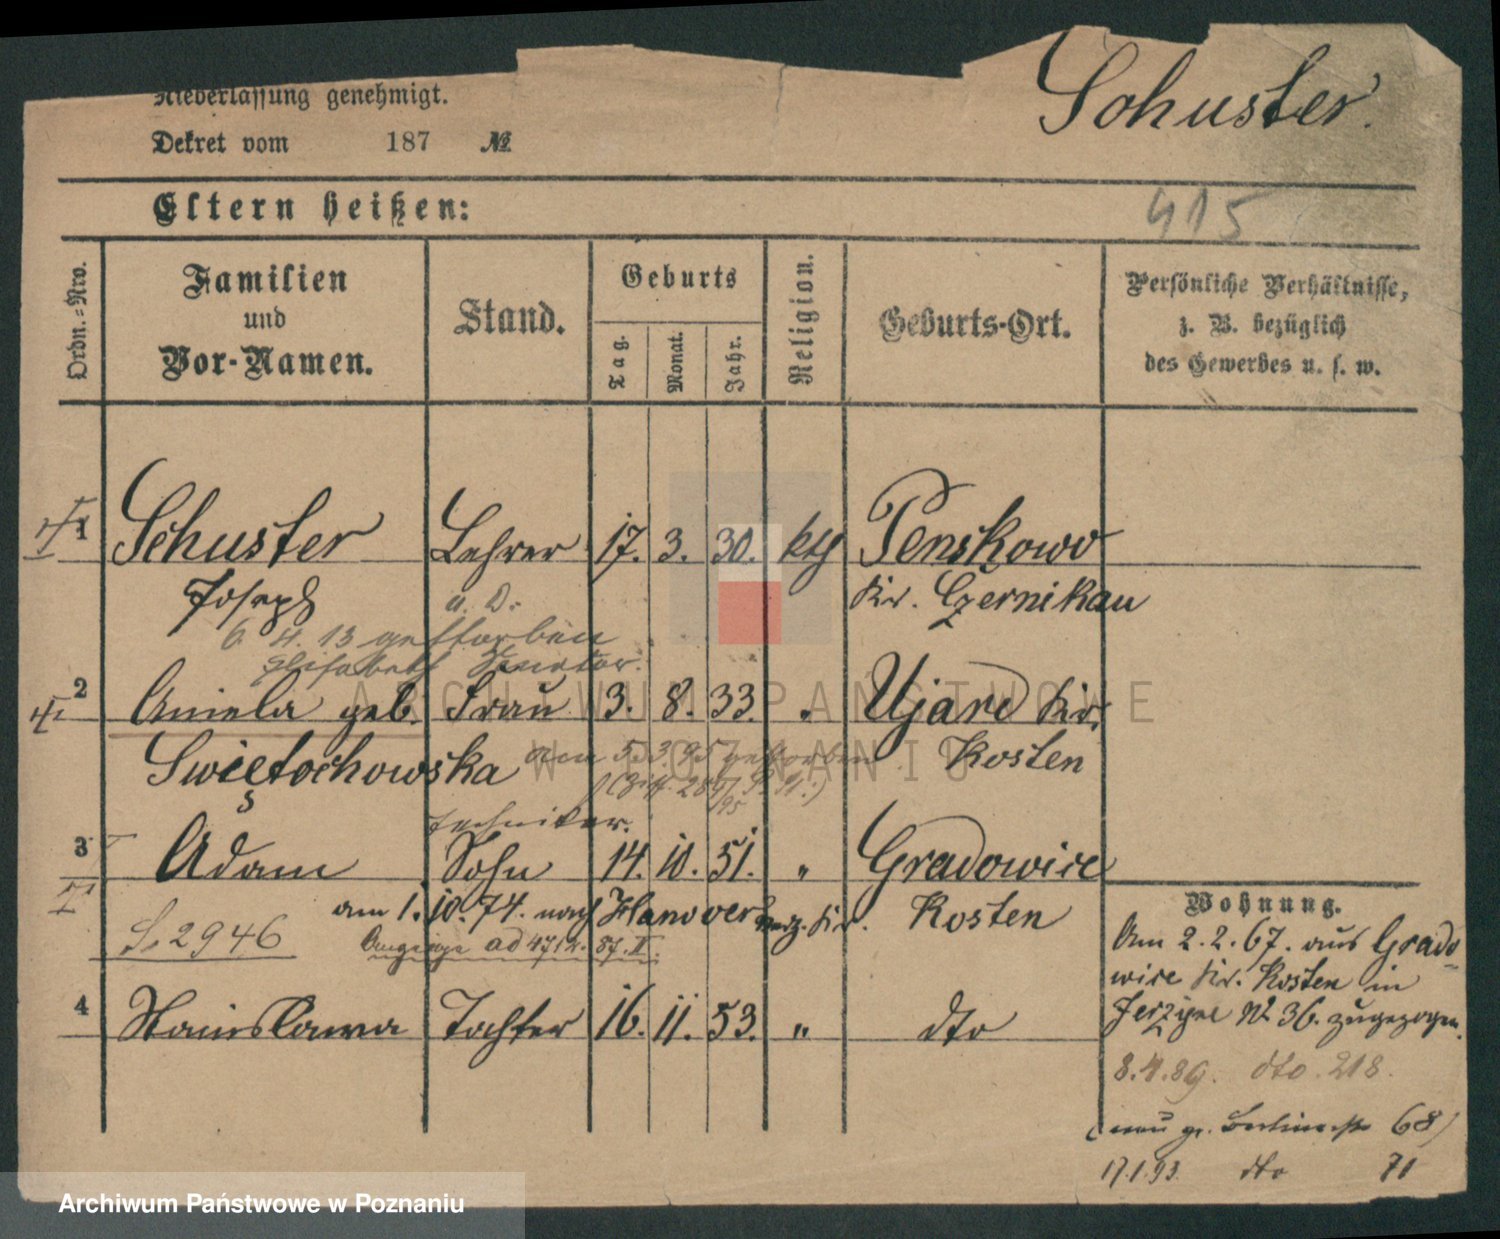 Niederlassung genehmigt.
Schuster.
Dekret vom 187 №
Eltern heißen:
415
Ordn.-Nro.
Familien
und
Vor-Namen.
Stand.
Geburts
Tag.
Monat.
Jahr.
Religion.
Geburts-Ort.
Persönliche Verhältnisse,
z. B. bezüglich
des Gewerbes u. s. w.
1 Schuster Lehrer 17. 3. 30. kth Penskowo
Joseph a. D. Kr. Czernikau
6. 4. 13 gestorben
Elisabeth
2 Aniela geb. Frau 3. 8. 33. " Ujazd Kr.
Swiętochowska am 5.3.95 gestorben Kosten
Techniker.
3 Adam Sohn 14. 10. 51. " Gradowice
am 1. 10. 74. nach Hanover verz. Kr. Kosten
S. 2946
4 Stanislawa Tochter 16. 11. 53. " dto
Wohnung.
Am 2.2.67. aus Grado-
wice Kr. Kosten in
Jerzyce № 36. zugezogen.
8.4.89. dto. 218.
(neu gr. Berlinerstr 68)
17.1.93. dto 71
ARCHIWUM PAŃSTWOWE
W POZNANIU
Archiwum Państwowe w Poznaniu